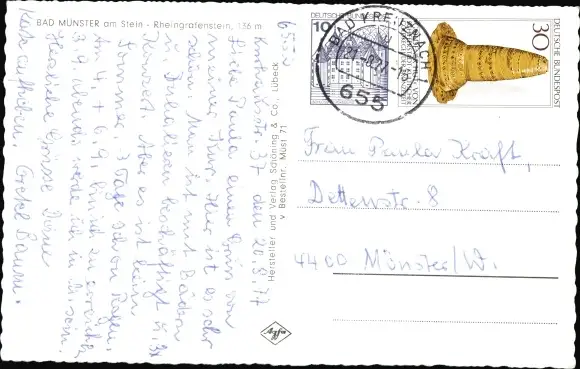 BAD MÜNSTER am Stein - Rheingrafenstein, 136 m
6550
37 den 20.8.77
Liebe Paula einen Gruß von
meiner Kur. Hier ist es sehr
schön. Man ist mit Baden
u. Inhalieren beschäftigt u. ist
Aber es ist kein
Sommer. 3 Tage schon Regen.
Am 4. + 6.9. bin ich zu erreichen
3.9. abends werde ich in M. sein.
Herzliche Grüße Deine
Gretel Baum.
Hersteller und Verlag Schöning & Co., Lübeck
v Bestellnr. Müst 71
agfa
DEUTSCHE BUNDESPOST
10
BAD KREUZNACH 1
655
30
DEUTSCHE BUNDESPOST
Frau Paula Kräft,
Dettenstr. 8
4400 Münster/W.